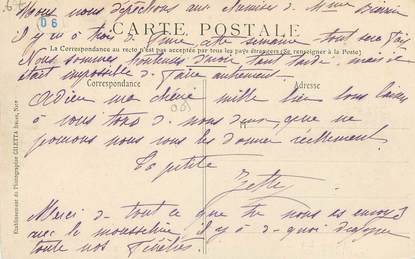 Nous nous dépêchons aux Minimes de Mme
06
il y en a trois de cette semaine tout sera fait
CARTE POSTALE
La Correspondance au recto n'est pas acceptée par tous les pays étrangers (Se renseigner à la Poste)
Nous sommes honteuses d'avoir tant tardé, mais il
était impossible de faire autrement.
Correspondance
Adresse
Adieu ma chérie mille bien bons baisers
à vous tous de nous deux, que ne
pouvons nous vous les donner réellement
Ta petite
Merci de tout ce que tu nous as envoyé
avec le mousseline il y a de quoi
toute nos
Etablissement de Photographie GILETTA frères, Nice